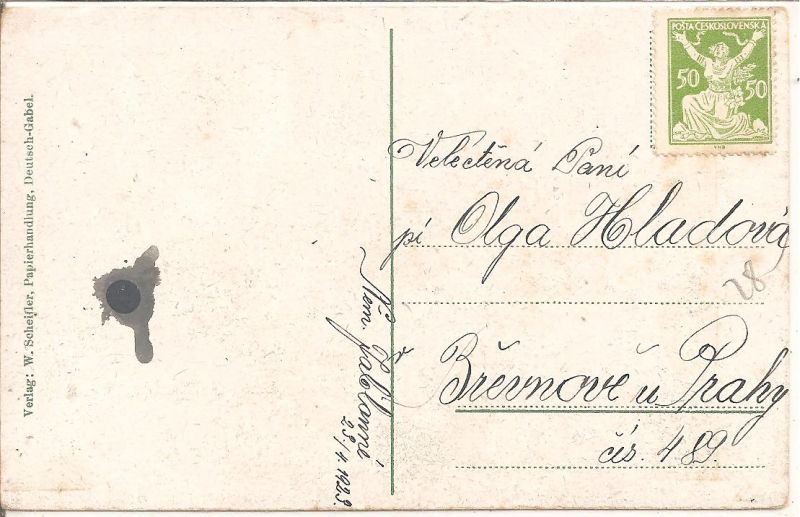 Verlag: W. Scheifler, Papierhandlung, Deutsch-Gabel.
POŠTA ČESKOSLOVENSKÁ
50 50
Velectěná Paní
pí Olga Hladová
28
v
Břevnově u Prahy
čís. 489.
Něm. Jablonné
23/4. 1923.